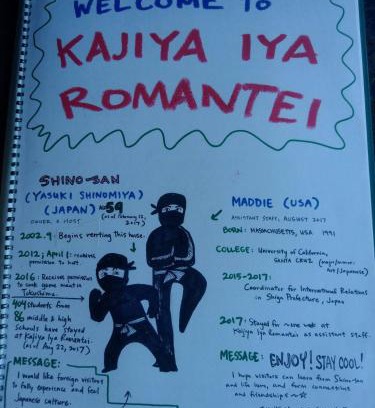 WELCOME TO
KAJIYA IYA
ROMANTEI
SHINO-SAN
(YASUKI SHINOMIYA)
(JAPAN) 59
(as of February 12, 2017)
OWNER & HOST
2002.9: Begins renting this house.
2012, April 1: receives
permission to host.
2016: Receives permission
to cook game meat in
Tokushima.
404 students from
86 middle & high
Schools have stayed
at Kajiya Iya Romantei.
(as of Aug 22, 2017)
MESSAGE:
I would like foreign visitors
to fully experience and feel
Japanese culture.
MADDIE (USA)
ASSISTANT STAFF, AUGUST 2017
BORN: MASSACHUSETTS, USA 1991
COLLEGE: University of California,
SANTA CRUZ (major/minor:
Art/Japanese)
2015-2017:
Coordinator for International Relations
in Shiga Prefecture, Japan
2017: Stayed for one week at
Kajiya Iya Romantei as assistant staff.
MESSAGE: ENJOY! STAY COOL!
I hope visitors can learn from Shino-san
and Iya love, and form connections
and friendships